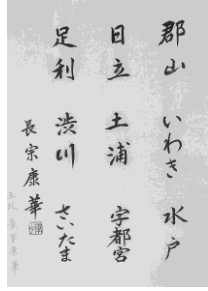 郡山 いわき 水戸
日立 土浦 宇都宮
足利 渋川 さいたま
長宗康華